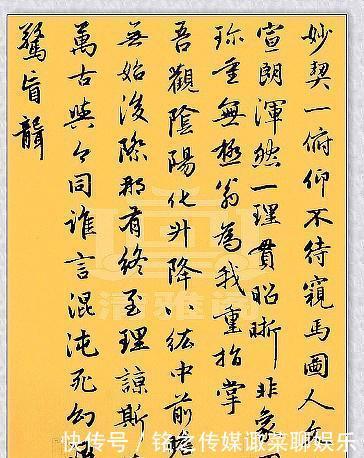 妙契一俯仰不待窺馬圖人文
宣朗渾然一理貫昭晰非象
珎重無極翁為我重指掌
吾觀陰陽化升降八紘中前瞻
無始後際那有終至理諒斯
萬古與今同誰言混沌死幻
驚盲聾
清雅阁
快传号/铭之传媒诹菜聊娱乐